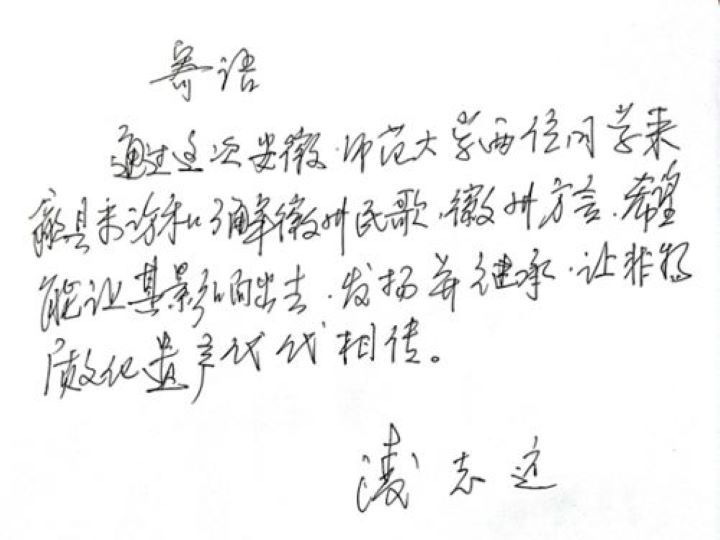 寄语
通过这次安徽师范大学两位同学来
歙县采访和了解徽州民歌、徽州方言,希望
能让其影响出去,发扬并继承,让非物
质文化遗产代代相传。
凌志远